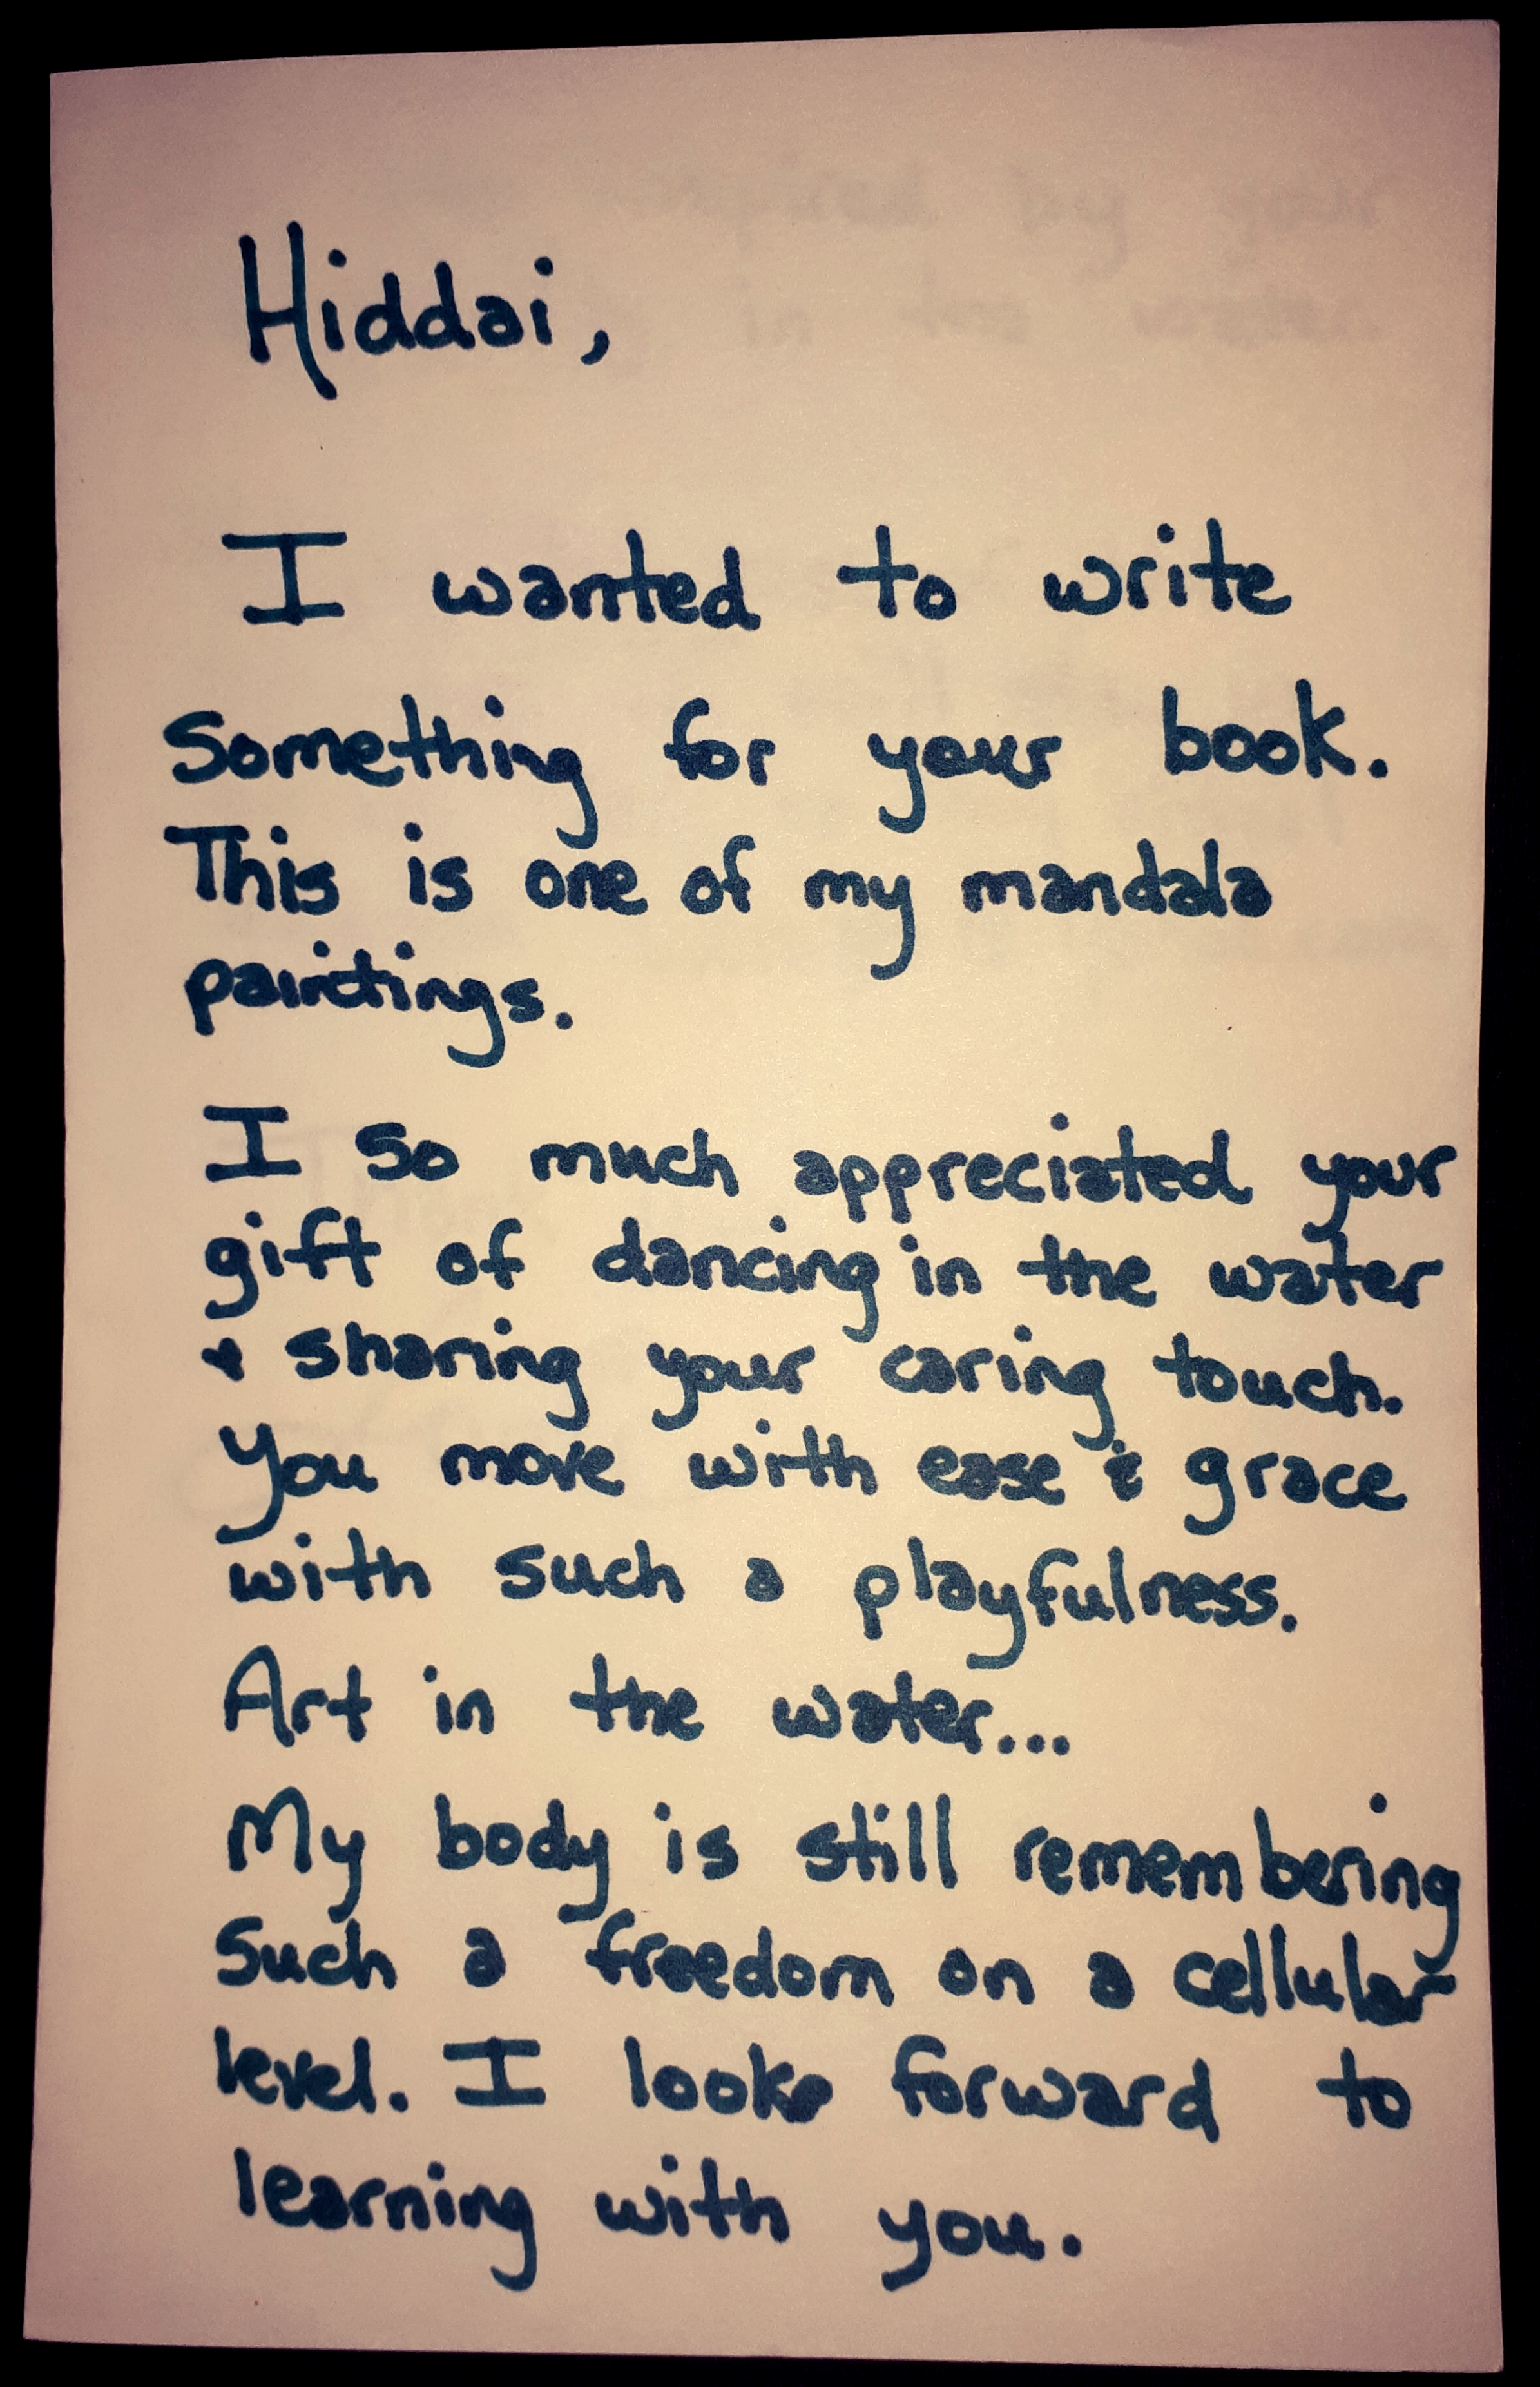 Hiddai,
I wanted to write
Something for your book.
This is one of my mandala
paintings.
I so much appreciated your
gift of dancing in the water
& sharing your caring touch.
You move with ease & grace
with such a playfulness.
Art in the water...
My body is still remembering
Such a freedom on a cellular
level. I look forward to
learning with you.